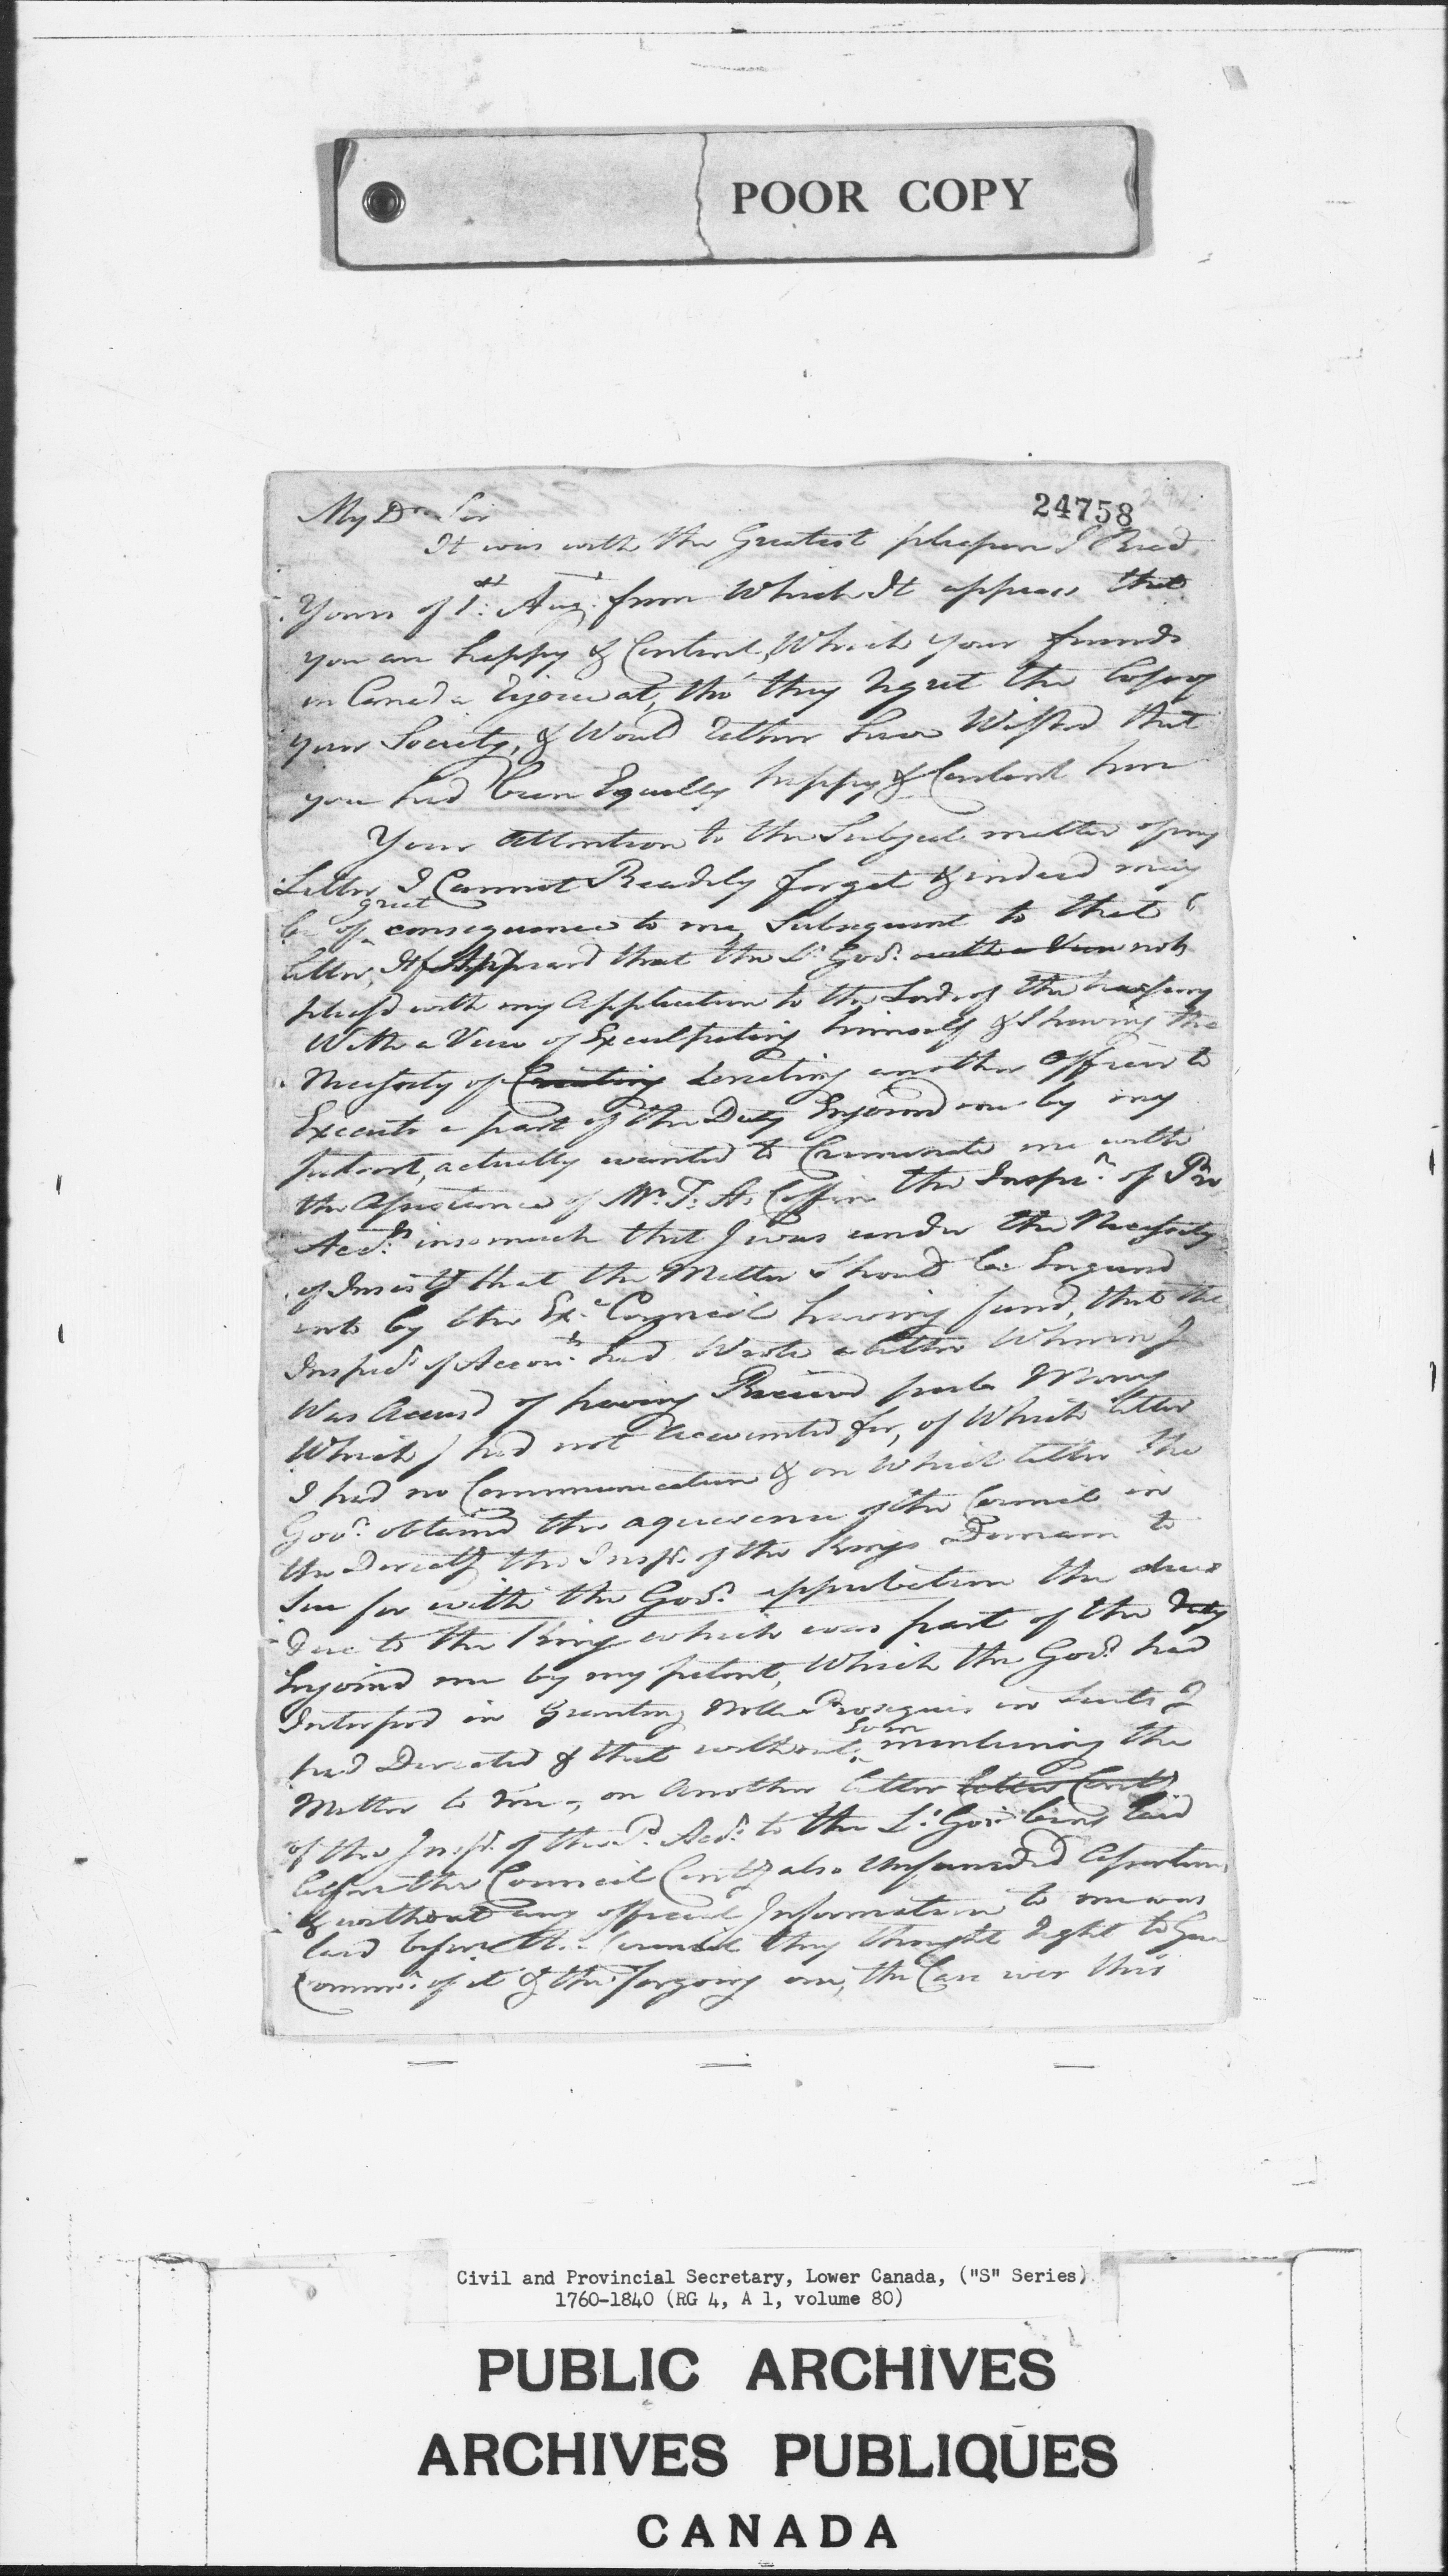 POOR COPY
24758
My Dr. Sir
It was with the Greatest pleasure I Read
Yours of 1st. Augt. from Which It appears that
you are happy & Content, Which your friends
in Canada rejoice at, tho' they regret the loss of
your Society, & Would rather have Wished that
you had been Equally happy & Content here
Your attention to the Subject matter of my
Letter I Cannot Readily forget & indeed may
be of great consequence to me, Subsequent to that
letter, It Appeard that the Lt. Govr. with a View not
pleasd with my Application to the Lords of the treasury
With a View of Exculpating himself & Shewing the
Necessity of Creating another Officer to
Execute a part of the Duty Enjoind me by my
patent, actually wanted to Criminate me with
the Assistance of Mr. T: A: Coffin the Inspr. of Pro
Acets. insomuch that I was under the Necessity
of Insistg that the Matter Should be Enquired
into by the Exe. Council having found, that the
Inspectr. of Accounts. had Wrote a letter Wherein I
Was Accusd of having Received publ Money
Which I had not accounted for, of Which letter
I had no Communication & on Which letter the
Govr. obtained the aquiesence of the Council in
the Directg the Inspr. of the Kings Domain to
Sue for with the Govr. approbation the dues
Due to the King which was part of the Duty
Enjoind me by my patent, Which the Govr. had
Interferd in Granting Nolle Prosequis in Suits I
had Directed & that without Even mentioning the
Matter to me, on Another letter letter Contg
of the Inspr. of the Po. Acts. to the Lt. Govr. being laid
before the Council Contg also Unfounded Assertions
& without any official Information to me was
laid before the Council they thought right to
of it & the forgoing one, the Case wer this
Civil and Provincial Secretary, Lower Canada, ("S" Series)
1760-1840 (RG 4, A 1, volume 80)
PUBLIC ARCHIVES
ARCHIVES PUBLIQUES
CANADA